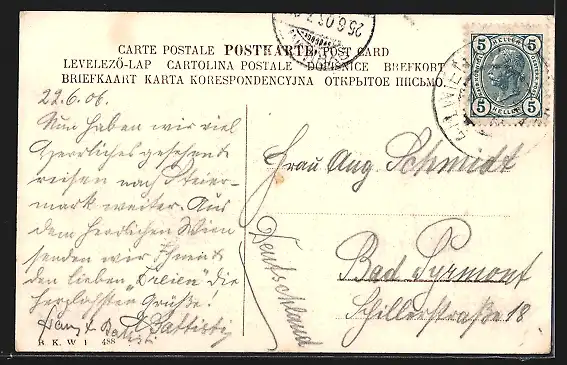 25.6.06.
CARTE POSTALE POSTKARTE POST CARD
LEVELEZŐ-LAP CARTOLINA POSTALE DOPISNICE BREFKORT
BRIEFKAART KARTA KORESPONDENCYJNA ОТКРЫТОЕ ПИСЬМО.
5 5
5 5
WIEN
22.6.06.
Nun haben wir viel
Herrliches gesehen &
reisen nach Steier-
mark weiter. Aus
dem herrlichen Wien
senden wir Ihnen &
den lieben „Freien" die
herzlichsten Grüße!
Battisti
Frau Aug. Schmidt
Bad Pyrmont
Schillerstraße 18
Deutschland
B. K. W. I 488